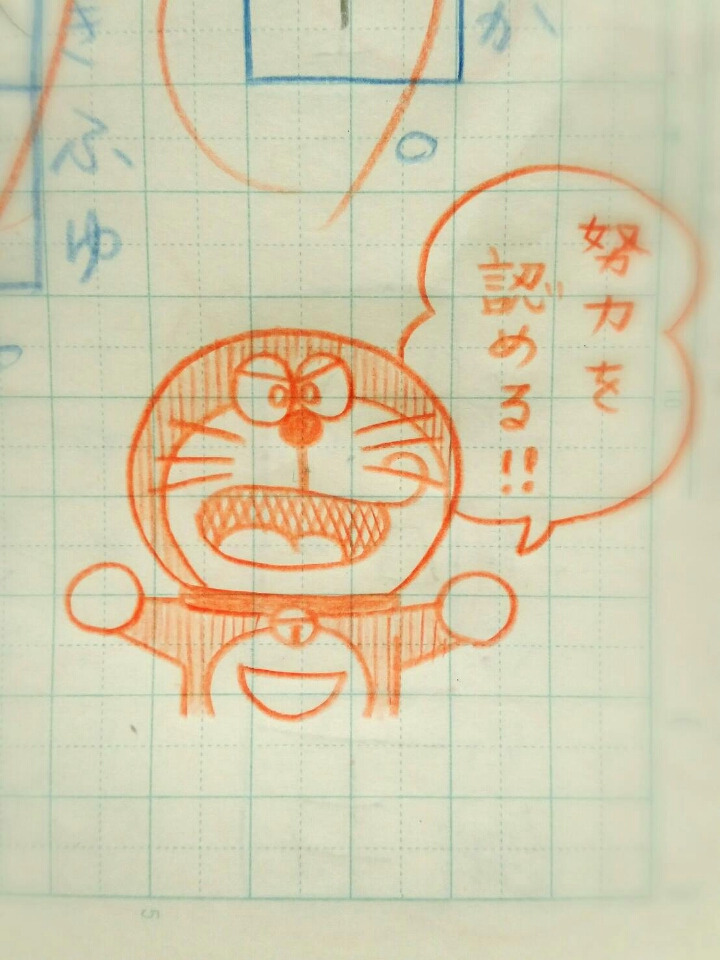 努力を
認める!!
か
ふゆ